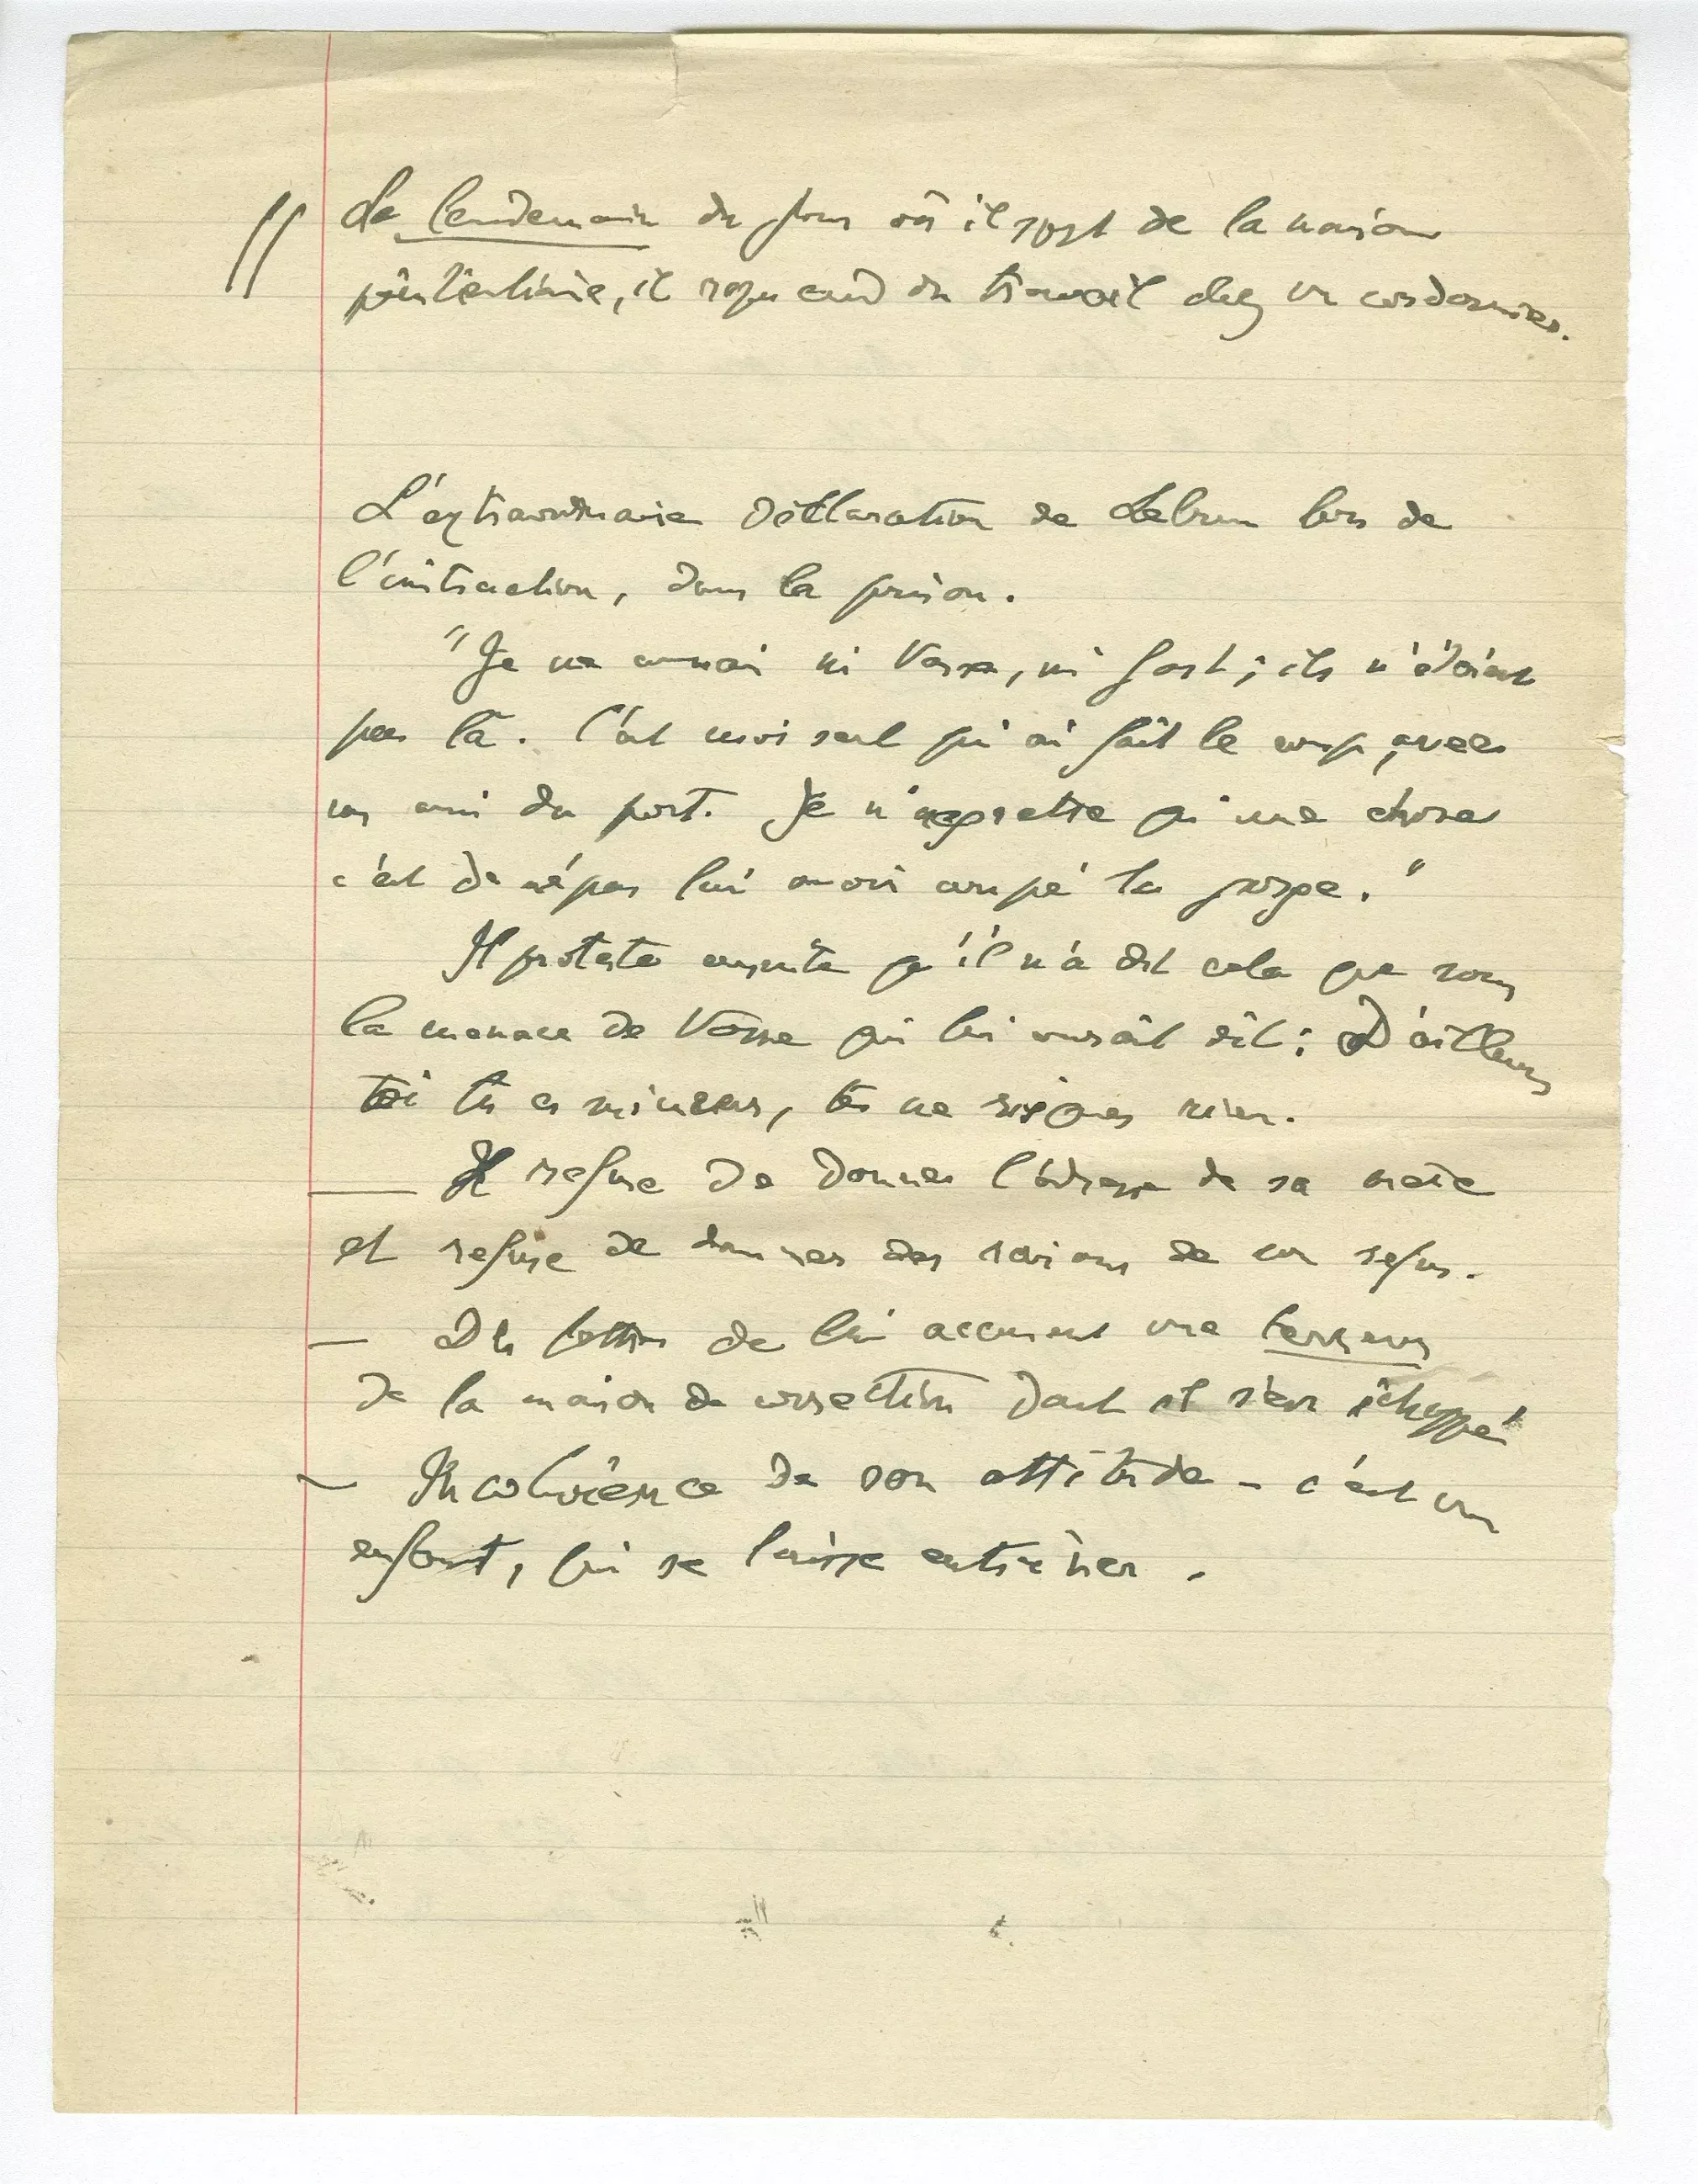 Le lendemain du jour où il sort de la maison
pénitentiaire, il reprend du travail chez un cordonnier.
L'extraordinaire déclaration de Lebrun lors de
l'instruction, dans la prison.
"Je ne connai ni Vasse, ni Gast ; ils n'étaient
pas là. C'est moi seul qui ai fait le coup, avec
un ami du port. Je n'regrette qu'une chose
c'est de ne pas lui avoir coupé la gorge."
Il proteste ensuite qu'il n'a dit cela que sous
la menace de Vasse qui lui aurait dit : D'ailleurs
toi tu es mineur, tu ne risques rien.
— Il refuse de donner l'adresse de sa mère
et refuse de donner des raisons de son refus.
— Des lettres de lui accusent une terreur
de la maison de correction dont il s'est échappé
— Incohérence de son attitude - c'est un
enfant, qui se laisse entraîner.